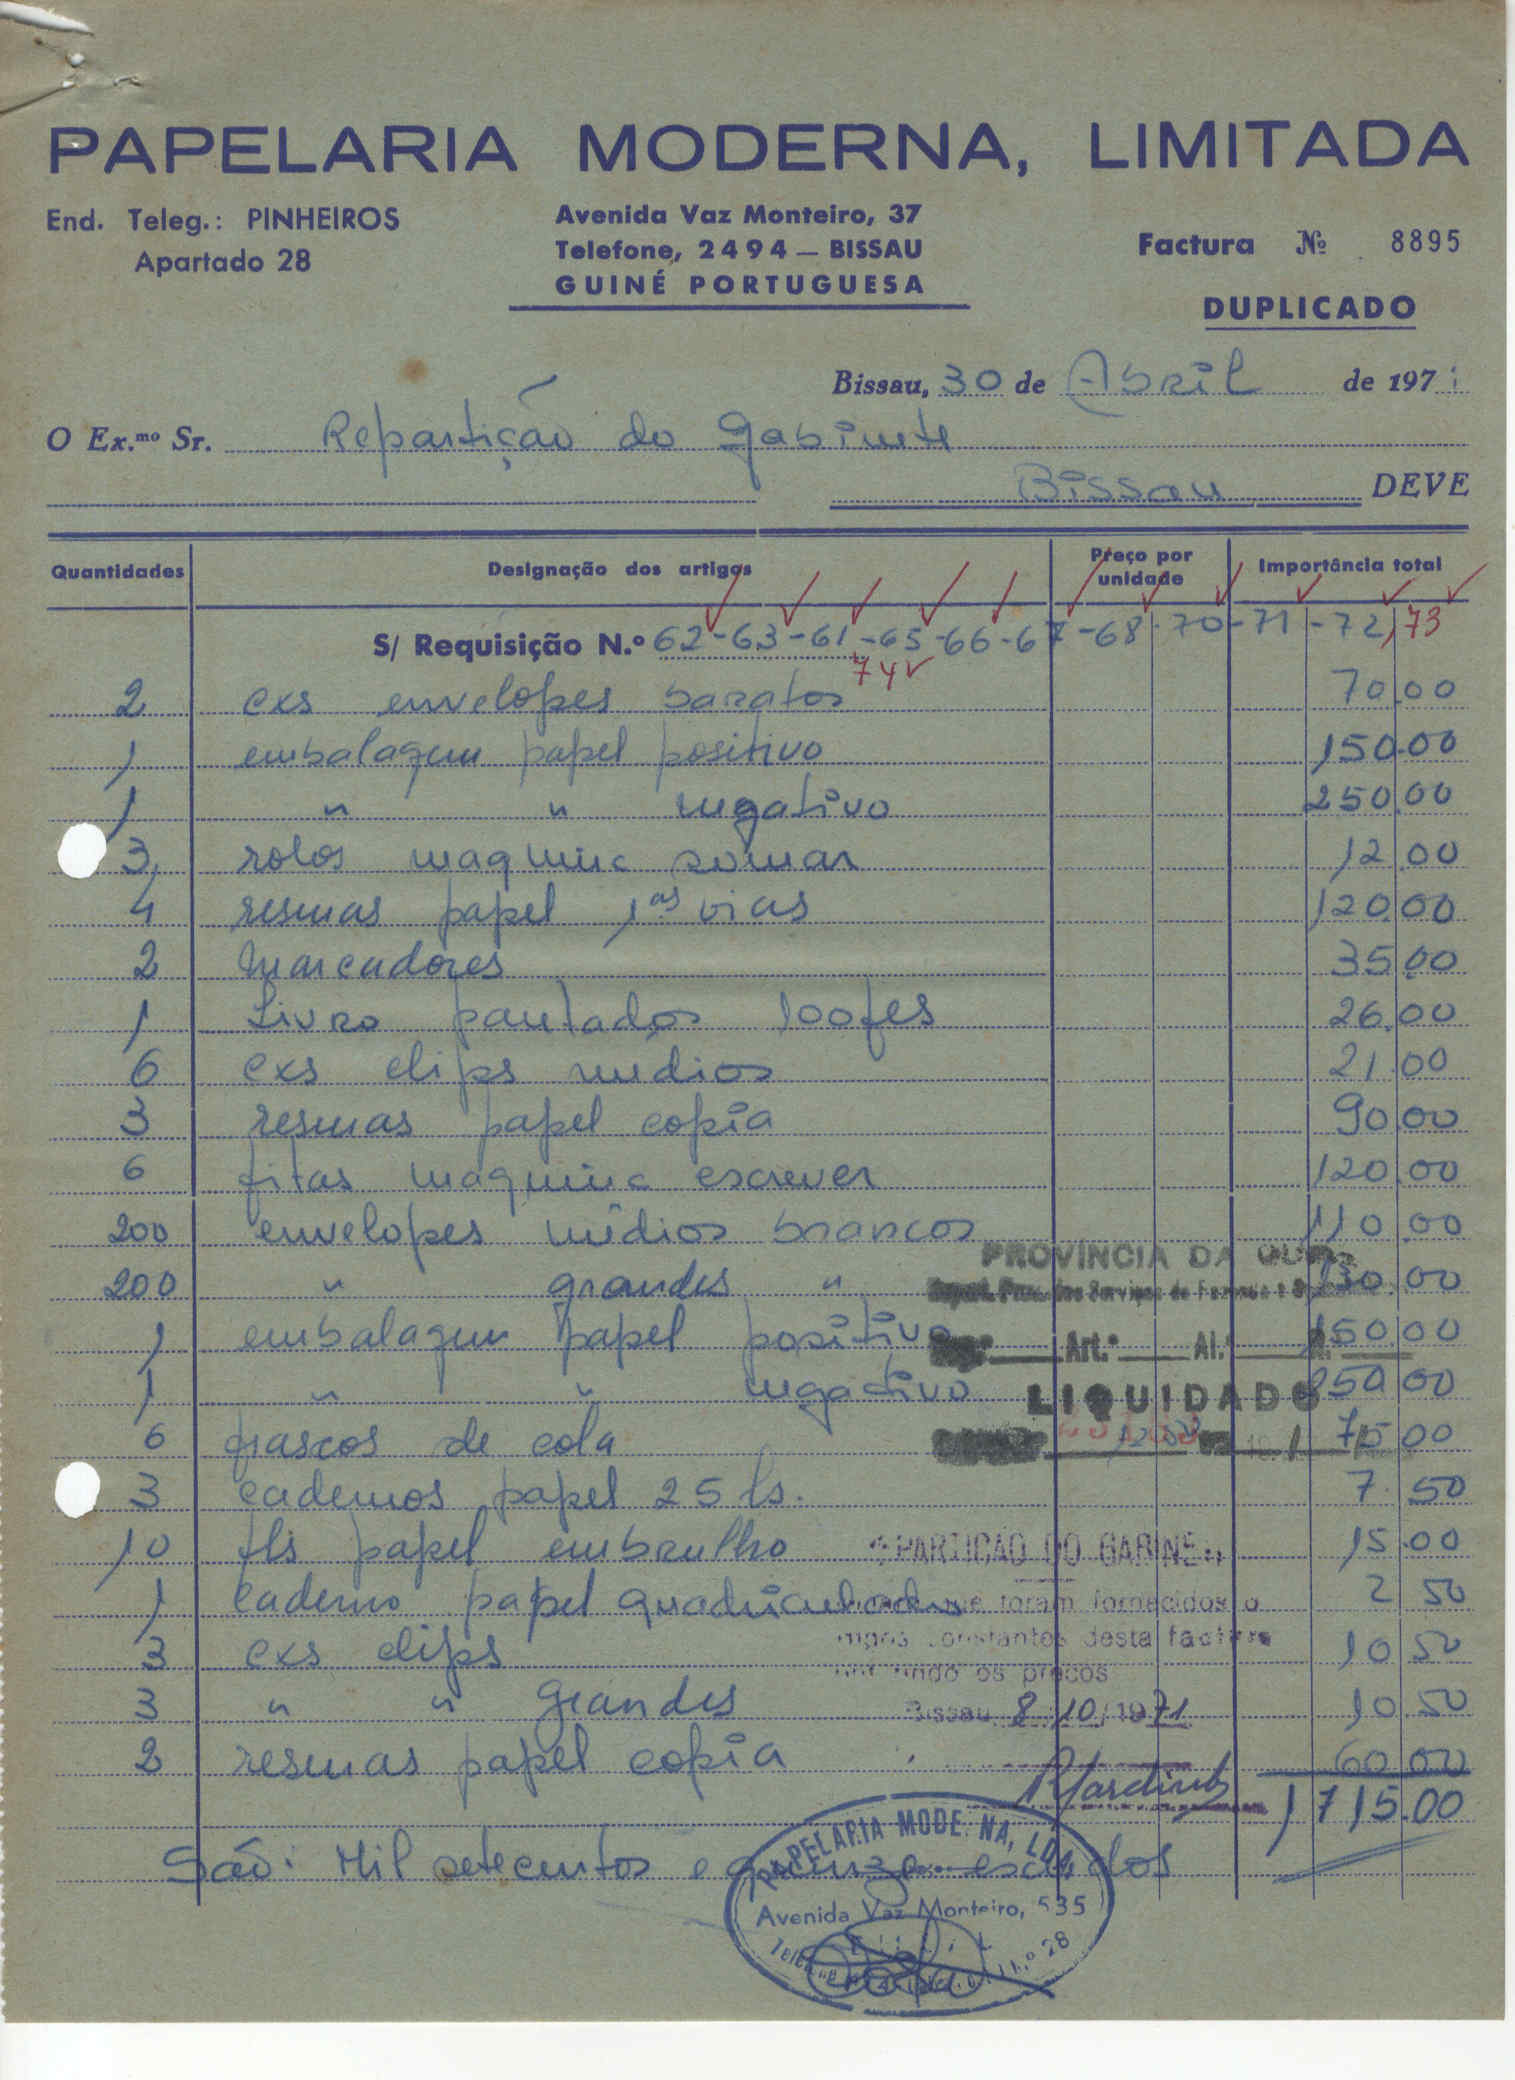 PAPELARIA MODERNA, LIMITADA
End. Teleg.: PINHEIROS
Apartado 28
Avenida Vaz Monteiro, 37
Telefone, 2494 — BISSAU
GUINÉ PORTUGUESA
Factura Nº 8895
DUPLICADO
Bissau, 30 de Abril de 1971
O Ex.mo Sr. Repartição do Gabinete
Bissau DEVE
Quantidades Designação dos artigos Preço por unidade Importância total
S/ Requisição N.º 62-63-61-65-66-67-68-70-71-72,73
74
2 cxs envelopes baratos 70.00
1 embalagem papel positivo 150.00
1 " " negativo 250.00
3 rolos maquina somar 12.00
4 resmas papel 1as vias 120.00
2 Marcadores 35.00
1 Livro pautados 100 fls 26.00
6 cxs clips médios 21.00
3 resmas papel copia 90.00
6 fitas maquina escrever 120.00
200 envelopes médios brancos 110.00
200 " grandes " 130.00
PROVÍNCIA DA GUINÉ
Serviços de Fazenda
1 embalagem papel positivo 150.00
Art.º Al.
1 " " negativo 250.00
LIQUIDADO
6 frascos de cola 75.00
3 cadernos papel 25 fs. 7.50
10 fls papel embrulho 15.00
REPARTIÇÃO DO GABINETE
1 caderno papel quadriculado 2.50
que foram fornecidos o
constantes desta factura
3 cxs clips 10.50
os preços
3 " " grandes 10.50
Bissau, 8/10/1971
2 resmas papel copia 60.00
1715.00
São: Mil setecentos e quinze escudos
PAPELARIA MODERNA, LDA
Avenida Vaz Monteiro, 535
28